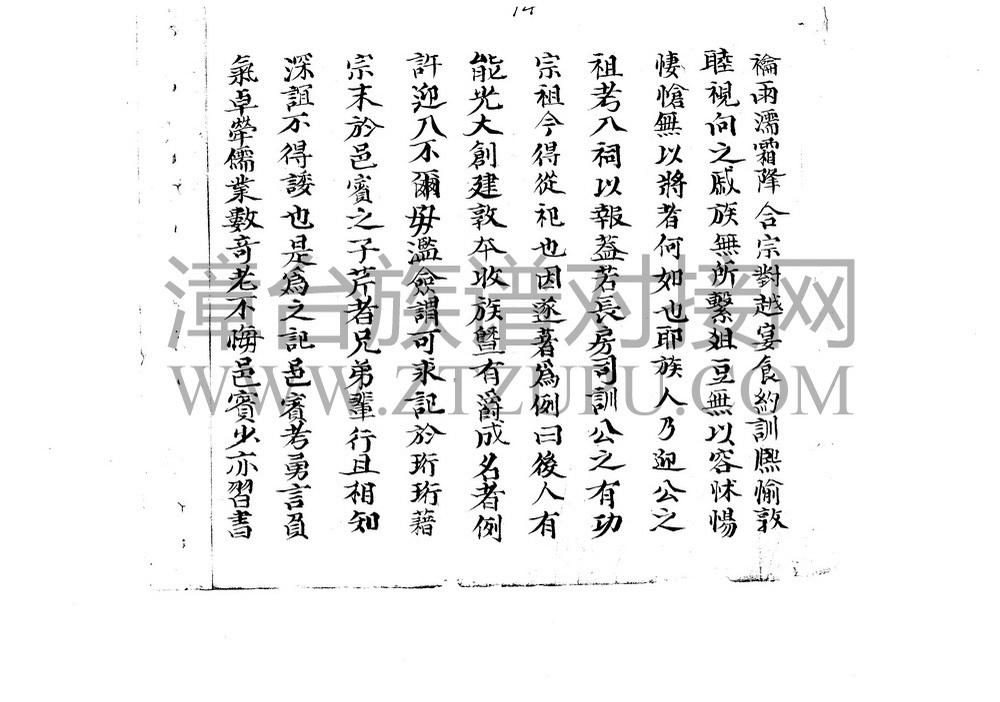 14
禴雨濡霜降合宗對越宴食約訓熈愉敦
睦視向之戚族無所繫爼豆無以容怵惕
悽愴無以將者何如也耶族人乃迎公之
祖考入祠以報葢若長房司訓公之有功
宗祖今得從祀也因遂著爲例曰後人有
能光大創建敦本收族曁有爵成名者例
許迎入不爾毋濫僉謂可求記於珩珩藉
宗末於邑賓之子芹者兄弟輩行且相知
深誼不得諉也是爲之記邑賓考勇言負
氣卓犖儒業數竒老不悔邑賓少亦習書
漳台族谱对接网
WWW.ZTZUPU.COM